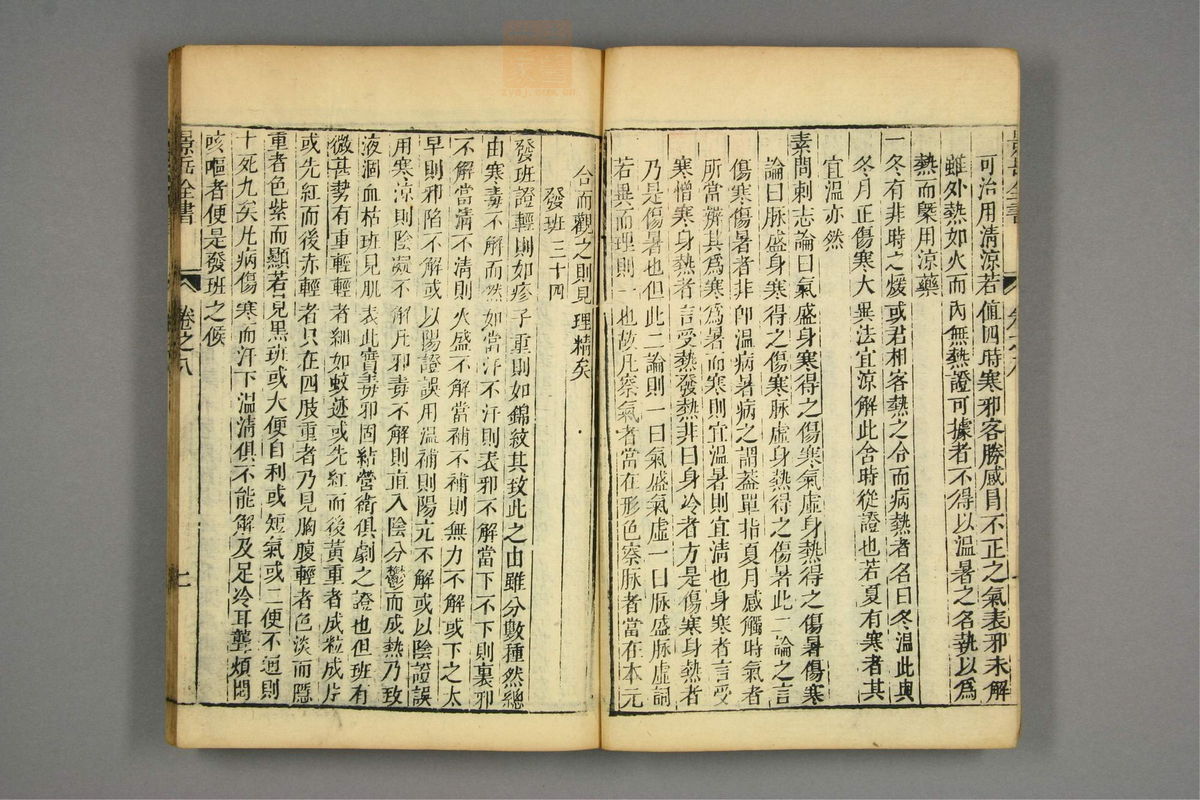 可治用清涼若值四時寒邪客勝感冒不正之氣表邪未解
雖外熱如火而內無熱證可據者不得以温暑之名執以爲
熱而槩用涼藥
一冬有非時之煖或君相客熱之令而病熱者名曰冬温此與
冬月正傷寒大異法宜涼解此舍時從證也若夏有寒者其
宜温亦然
素問刺志論曰氣盛身寒得之傷寒氣虛身熱得之傷暑傷寒
論曰脉盛身寒得之傷寒脉虛身熱得之傷暑此二論之言
傷寒傷暑者非卽温病暑病之謂葢單指夏月感觸時氣者
所當辨其爲寒爲暑而寒則宜温暑則宜清也身寒者言受
寒憎寒身熱者言受熱發熱非曰身冷者方是傷寒身熱者
乃是傷暑也但此二論則一曰氣盛氣虛一曰脉盛脉虛詞
若異而理則一也故凡察氣者當在形色察脉者當在本元
合而觀之則見理精矣
發班三十四
發班證輕則如疹子重則如錦紋其致此之由雖分數種然總
由寒毒不解而然如當汗不汗則表邪不解當下不下則裏邪
不解當清不清則火盛不解當補不補則無力不解或下之太
早則邪陷不解或以陽證誤用温補則陽亢不解或以陰證誤
用寒涼則陰凝不解凡邪毒不解則直入陰分鬱而成熱乃致
液涸血枯班見肌表此實毒邪固結營衛俱劇之證也但班有
微甚勢有重輕輕者細如蚊迹或先紅而後黄重者成粒成片
或先紅而後赤輕者只在四肢重者乃見胸腹輕者色淡而隱
重者色紫而顯若見黑班或大便自利或短氣或二便不通則
十死九矣凡病傷寒而汗下温清俱不能解及足冷耳聾煩悶
咳嘔者便是發班之候
景岳全書
卷之八
七